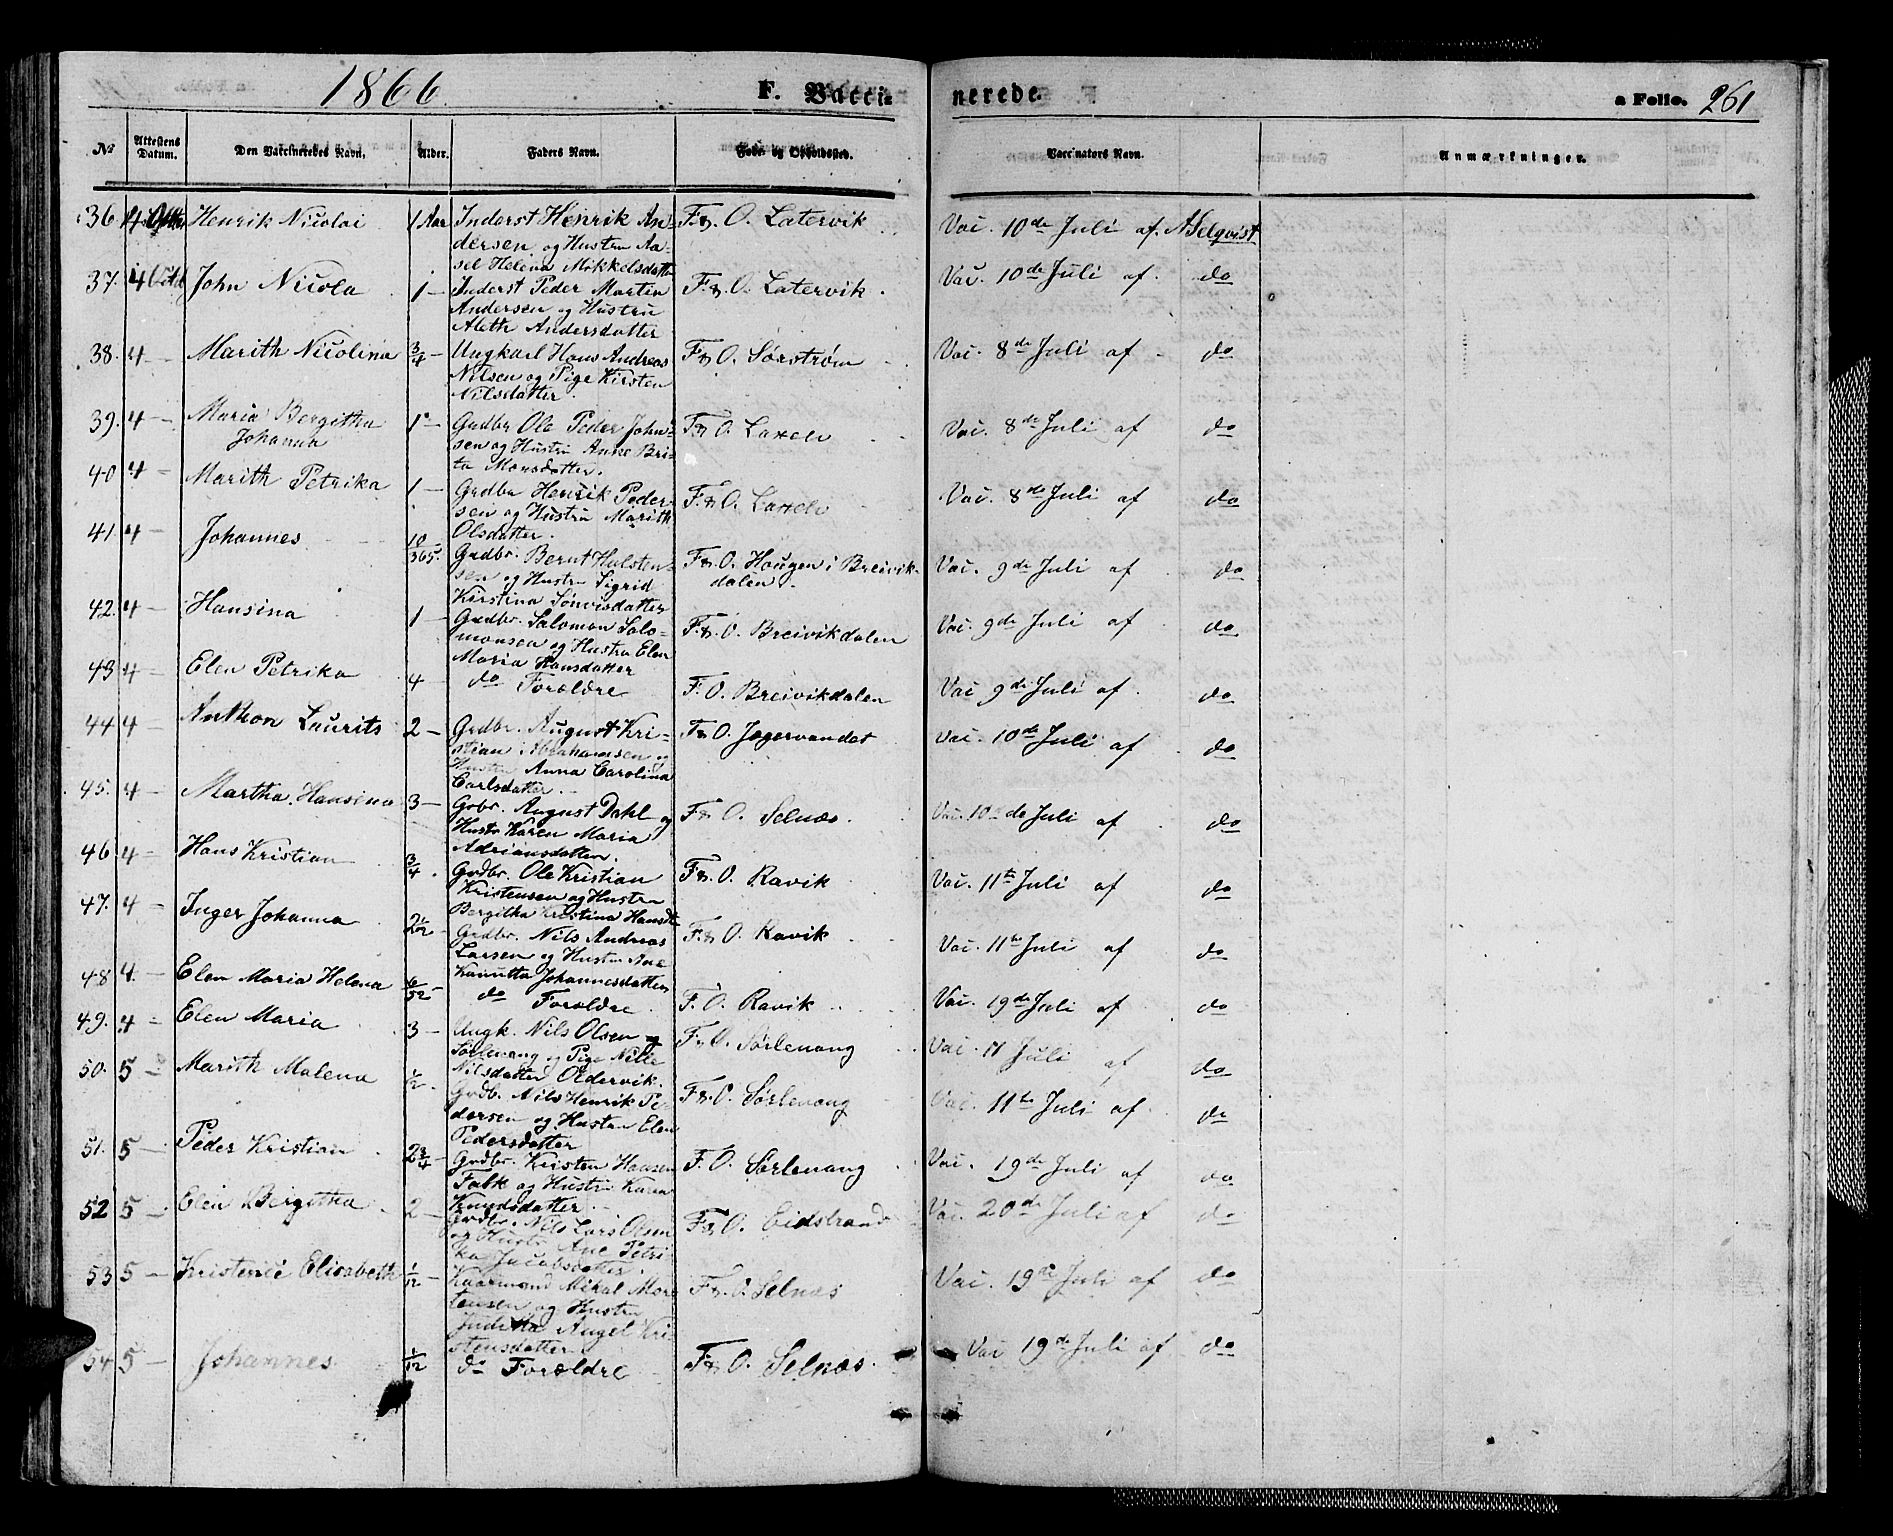 1866 F. Vaccinerede a Folio. 261
No Attestens Datum. Den Vaksineredes Navn. Alder. Faders Navn. Føde- og Opholdssted. Vaccinators Navn. Anmærkninger.
36. 4 Henrik Nicolai 1 Aar Inderst Henrik An- F. & O. Latervik Vac. 10de Juli af. A Selqvist
dersen og Hustru Aa-
sel Helena Mikkelsdatter
37. 4 John Nicola 1 — Inderst Peder Martin F. & O. Latervik. Vac. 10de Juli af. do
Andersen og Hustru
Aleth Andersdatter
38. 4 — Marith Nicolina 3/4 — Ungkarl Hans Andreas F & O. Sørstrøm Vac. 8de Juli af do
Nilsen og Pige Kirsten
Nilsdatter.
39. 4 — Maria Bergitha 1 — Gadbr Ole Peder John- F & O. Laxelv Vac. 8de Juli af do
Johanna sen og Hustru Anne Bri-
ta Monsdatter.
40 4 — Marith Petrika 1 — Grdbr Henrik Peder- F. & O. Laxelv Vac. 8de Juli af do
sen og Hustru Marith
Olsdatter.
41. 4 — Johannes 10/365. Grdbr. Bernt Halsten- F & O. Haugen i Breivik- Vac. 9de Juli af do
sen og Hustru Sigrid dalen.
Kirstina
42. 4 — Hansina 1 — Grdbr. Salomon Salo- F. & O. Breivikdalen Vac. 9de Juli af do
monsen og Hustru Elen
Maria Hansdatter
43 4 — Elen Petrika 4 do Forældre F. O. Breivikdalen Vac 9de Juli af. do
44 4 — Anthon Laurits 2 — Grdbr. August Kri- F & O. Jægervandet Vac. 10de Juli af do
stian Abrahamsen og
Hustru Anna Carolina
Carlsdatter.
45. 4 — Martha Hansina 3 — Grbr. August Dahl og F & O. Selnæs. Vac. 10de Juli af do
Hustr Karen Maria
Adriansdatter.
46 4 — Hans Kristian 3/4. Grdbr. Ole Kristian F. & O. Ravik Vac. 11te Juli af do
Kristensen og Hustru
Bergitha Kristina Hansdt
47. 4 — Inger Johanna 2 1/2 — Grdbr. Nils Andreas F. & O. Ravik Vac. 11te Juli af do
Larsen og Hustru Ane
Kanutta Johannesdatter
48 4. — Elen Maria Helena 6/52 — do Forældre F. O. Ravik Vac. 19de Juli af do
49. 4 — Elen Maria 3 — Ungk. Nils Olsen og F & O. Sørlenang Vac. 11 Juli af do
Sørlenang og Pige Nille
Nilsdatter Oldervik.
50. 5 — Marith Malena 1/2. Grdb. Nils Henrik Pe- F & O. Sørlenang Vac. 11te Juli af do
dersen og Hustru Elen
Pedersdatter
51. 5 — Peder Kristian 2 3/4 — Grdbr. Kristen Hansen F. O. Sørlenang Vac. 19de Juli af do
Falk og Hustru Karen
Knudsdatter.
52 5 — Elen Bergitha 2 — Grdbr. Nils Lars Olsen F & O. Eidstrand Vac. 20de Juli af do
og Hustr Ane Petri-
ka Jacobsdatter.
53 5 — Kristence Elisabeth 1/12 — Kaarmand Mikal Mor- F & O. Selnæs Vac. 19de Juli af do
tensen og Hustru
Juditha Angel Kri-
stensdatter
54 5 — Johannes 1/12 do Forældre F & O. Selnæs. Vac 19de Juli af do